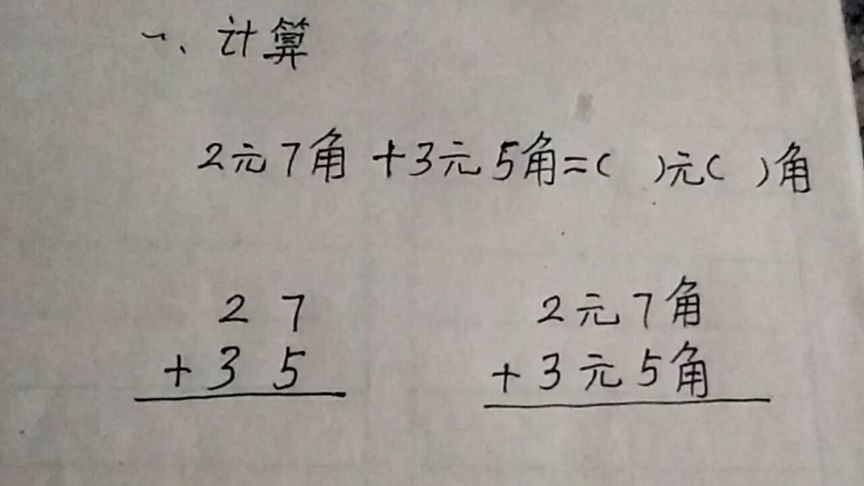 一、计算
2元7角+3元5角=( )元( )角
27 2元7角
+35 +3元5角